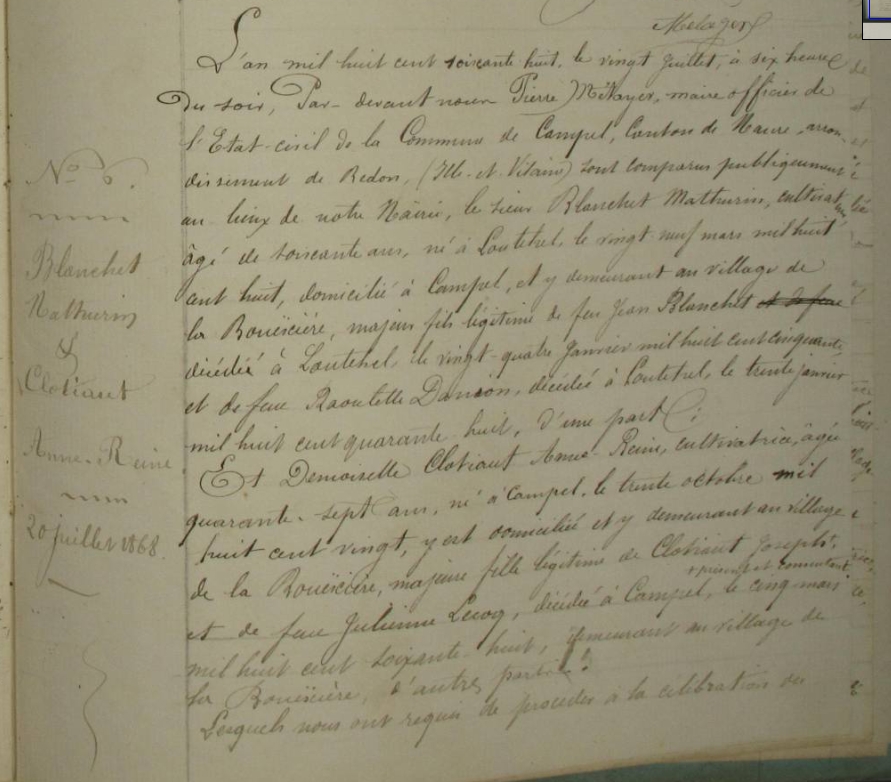 N° 6.
Blanchet
Mathurin
&
Clotiaut
Anne-Reine
20 juillet 1868.
L'an mil huit cent soixante huit, le vingt juillet, à six heures
du soir, Par-devant nous Pierre Métayer, maire officier de
l'Etat-civil de la Commune de Campel, Canton de Maure, arron-
dissement de Redon, (Ille-et-Vilaine) sont comparus publiquement
au lieux de notre Mairie, le sieur Blanchet Mathurin, cultivateur
âgé de soixante ans, né à Loutehel, le vingt-neuf mars mil huit
cent huit, domicilié à Campel, et y demeurant au village de
la Bouëxière, majeur fils légitime de feu Jean Blanchet et de feue
décédé à Loutehel, le vingt-quatre Janvier mil huit cent cinquante
et de feue Raoulette Danion, décédée à Loutehel, le trente janvier
mil huit cent quarante-huit, d'une part;
Et Demoiselle Clotiaut Anne-Reine, cultivatrice, âgée
quarante-sept ans, né à Campel, le trente octobre mil
huit cent vingt, y est domiciliée et y demeurant au village
de la Bouëxière, majeure fille légitime de Clotiaut Joseph,
présent et consentant
et de feue Julienne Lecoq, décédée à Campel, le cinq mars
mil huit cent soixante-huit, demeurant au village de
la Bouëxière, d'autre part.
Lesquels nous ont requis de procéder à la célébration du